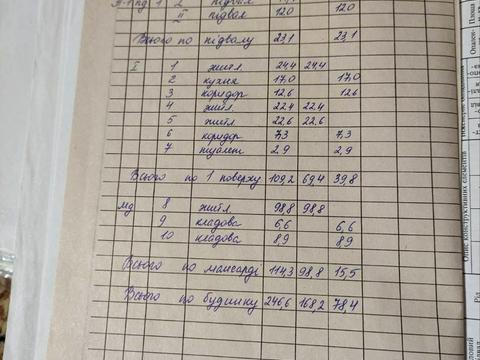 II підвал 12,0 12,0
Всього по підвалу 23,1 23,1
I 1 житл. 24,4 24,4
2 кухня 17,0 17,0
3 коридор 12,6 12,6
4 житл. 22,4 22,4
5 житл. 22,6 22,6
6 коридор 7,3 7,3
7 туалет 2,9 2,9
Всього по 1 поверху 109,2 69,4 39,8
мд 8 житл. 98,8 98,8
9 кладова 6,6 6,6
10 кладова 8,9 8,9
Всього по мансарді 114,3 98,8 15,5
Всього по будинку 246,6 168,2 78,4
Опис конструктивних елементів